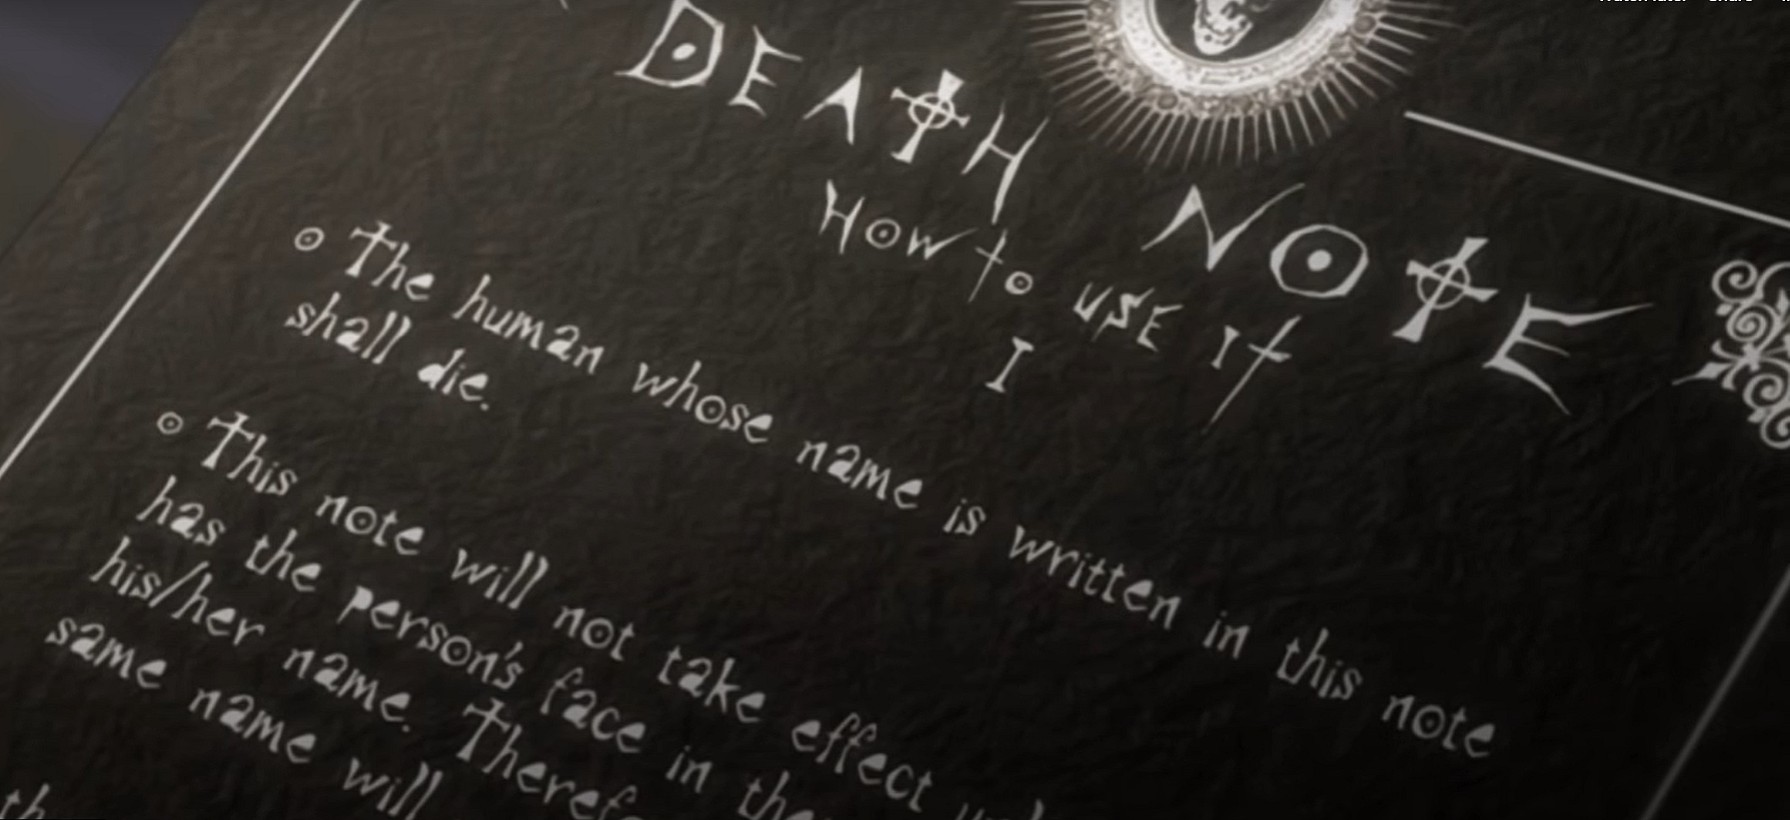 DEATH NOTE
How to use it
I
The human whose name is written in this note
shall die.
This note will not take effect
has the person's face in
his/her name.
same name will